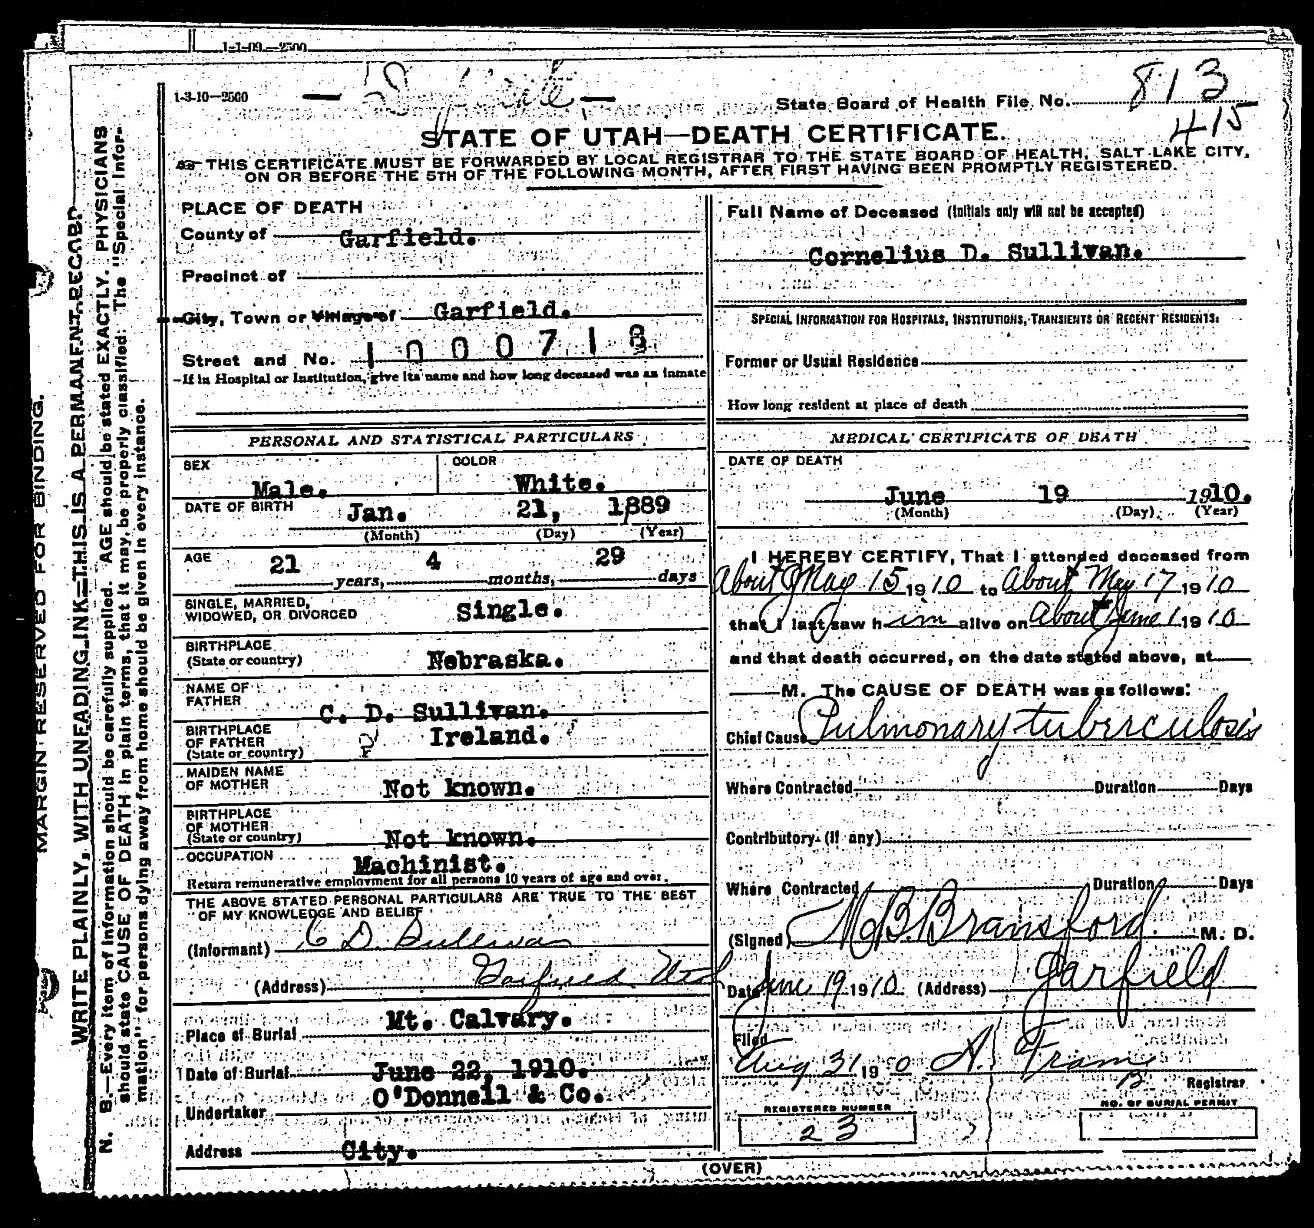 1-1-09—2500
1-3-10—2500
State Board of Health File No. 813
415
STATE OF UTAH—DEATH CERTIFICATE.
THIS CERTIFICATE MUST BE FORWARDED BY LOCAL REGISTRAR TO THE STATE BOARD OF HEALTH, SALT LAKE CITY,
ON OR BEFORE THE 5TH OF THE FOLLOWING MONTH, AFTER FIRST HAVING BEEN PROMPTLY REGISTERED.
MARGIN RESERVED FOR BINDING.
WRITE PLAINLY, WITH UNFADING INK—THIS IS A PERMANENT RECORD
N. B.—Every item of information should be carefully supplied. AGE should be stated EXACTLY. PHYSICIANS
should state CAUSE OF DEATH in plain terms, that it may be properly classified: The "Special Infor-
mation" for persons dying away from home should be given in every instance.
PLACE OF DEATH
County of Garfield.
Precinct of
City, Town or Village of Garfield.
Street and No. 1000718
If in Hospital or Institution, give its name and how long deceased was an inmate
PERSONAL AND STATISTICAL PARTICULARS
SEX Male.
COLOR White.
DATE OF BIRTH Jan. 21, 1889
(Month) (Day) (Year)
AGE 21 years, 4 months, 29 days
SINGLE, MARRIED,
WIDOWED, OR DIVORCED Single.
BIRTHPLACE
(State or country) Nebraska.
NAME OF
FATHER C. D. Sullivan.
BIRTHPLACE
OF FATHER
(State or country) Ireland.
MAIDEN NAME
OF MOTHER Not known.
BIRTHPLACE
OF MOTHER
(State or country) Not known.
OCCUPATION Machinist.
Return remunerative employment for all persons 10 years of age and over.
THE ABOVE STATED PERSONAL PARTICULARS ARE TRUE TO THE BEST
OF MY KNOWLEDGE AND BELIEF
(Informant) C D Sullivan
(Address) Garfield Utah
Place of Burial Mt. Calvary.
Date of Burial June 22, 1910.
Undertaker O'Donnell & Co.
Address City.
Full Name of Deceased (Initials only will not be accepted)
Cornelius D. Sullivan.
SPECIAL INFORMATION FOR HOSPITALS, INSTITUTIONS, TRANSIENTS OR RECENT RESIDENTS:
Former or Usual Residence
How long resident at place of death
MEDICAL CERTIFICATE OF DEATH
DATE OF DEATH
June 19 1910.
(Month) (Day) (Year)
I HEREBY CERTIFY, That I attended deceased from
About May 15 1910 to About May 17 1910
that I last saw him alive on About June 1 1910
and that death occurred, on the date stated above, at
M. The CAUSE OF DEATH was as follows:
Chief Cause Pulmonary tuberculosis
Where Contracted Duration Days
Contributory (if any)
Where Contracted Duration Days
(Signed) M B. Bransford. M. D.
Date June 19 1910 (Address) Garfield
Filed
Aug 31 190 A. Fram
Registrar
REGISTERED NUMBER
23
NO. OF BURIAL PERMIT
(OVER)